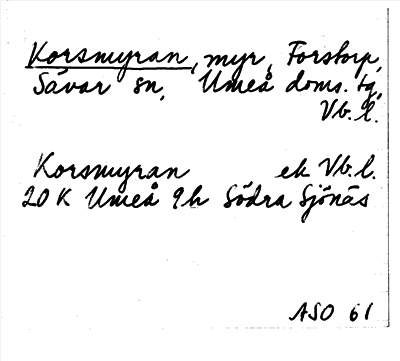 Korsmyran, myr, Forstorp,
Sävar sn, Umeå doms. tg,
Vb. l.
Korsmyran ek Vb. l.
20 K Umeå 9 h Södra Sjönäs
ASO 61